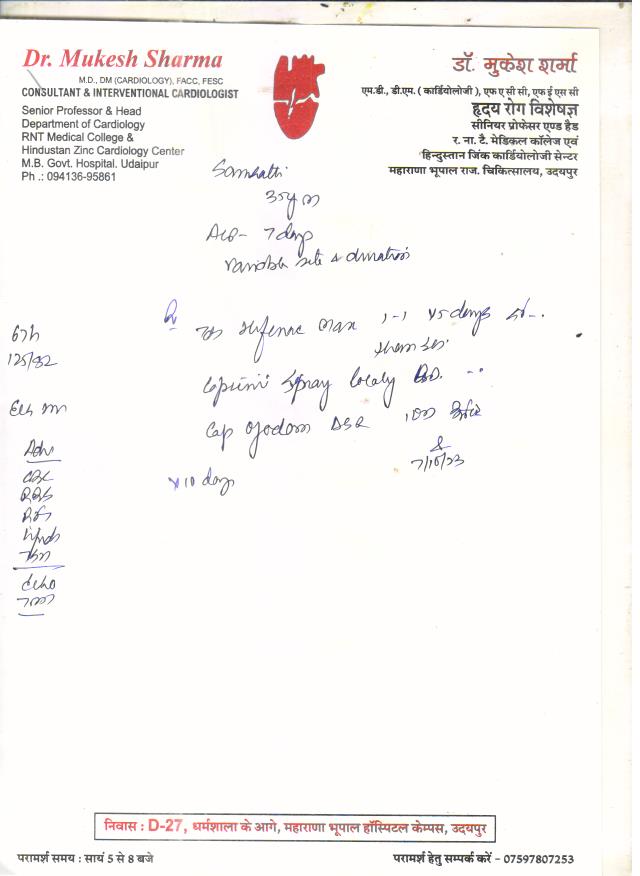 Dr. Mukesh Sharma
M.D., DM (CARDIOLOGY), FACC, FESC
CONSULTANT & INTERVENTIONAL CARDIOLOGIST
Senior Professor & Head
Department of Cardiology
RNT Medical College &
Hindustan Zinc Cardiology Center
M.B. Govt. Hospital. Udaipur
Ph .: 094136-95861
डॉ. मुकेश शर्मा
एम.डी., डी.एम. ( कार्डियोलोजी ), एफ ए सी सी, एफ ई एस सी
हृदय रोग विशेषज्ञ
सीनियर प्रोफेसर एण्ड हैड
र. ना. टै. मेडिकल कॉलेज एवं
हिन्दुस्तान जिंक कार्डियोलोजी सेन्टर
महाराणा भूपाल राज. चिकित्सालय, उदयपुर
35y m
7 days
variable site & duration
1-1 x 5 days
spray localy
Cap DSR
7/10/23
x 10 days
125/82
Adv
CBC
RBS
Echo
निवास : D-27, धर्मशाला के आगे, महाराणा भूपाल हॉस्पिटल केम्पस, उदयपुर
परामर्श समय : सायं 5 से 8 बजे
परामर्श हेतु सम्पर्क करें - 07597807253